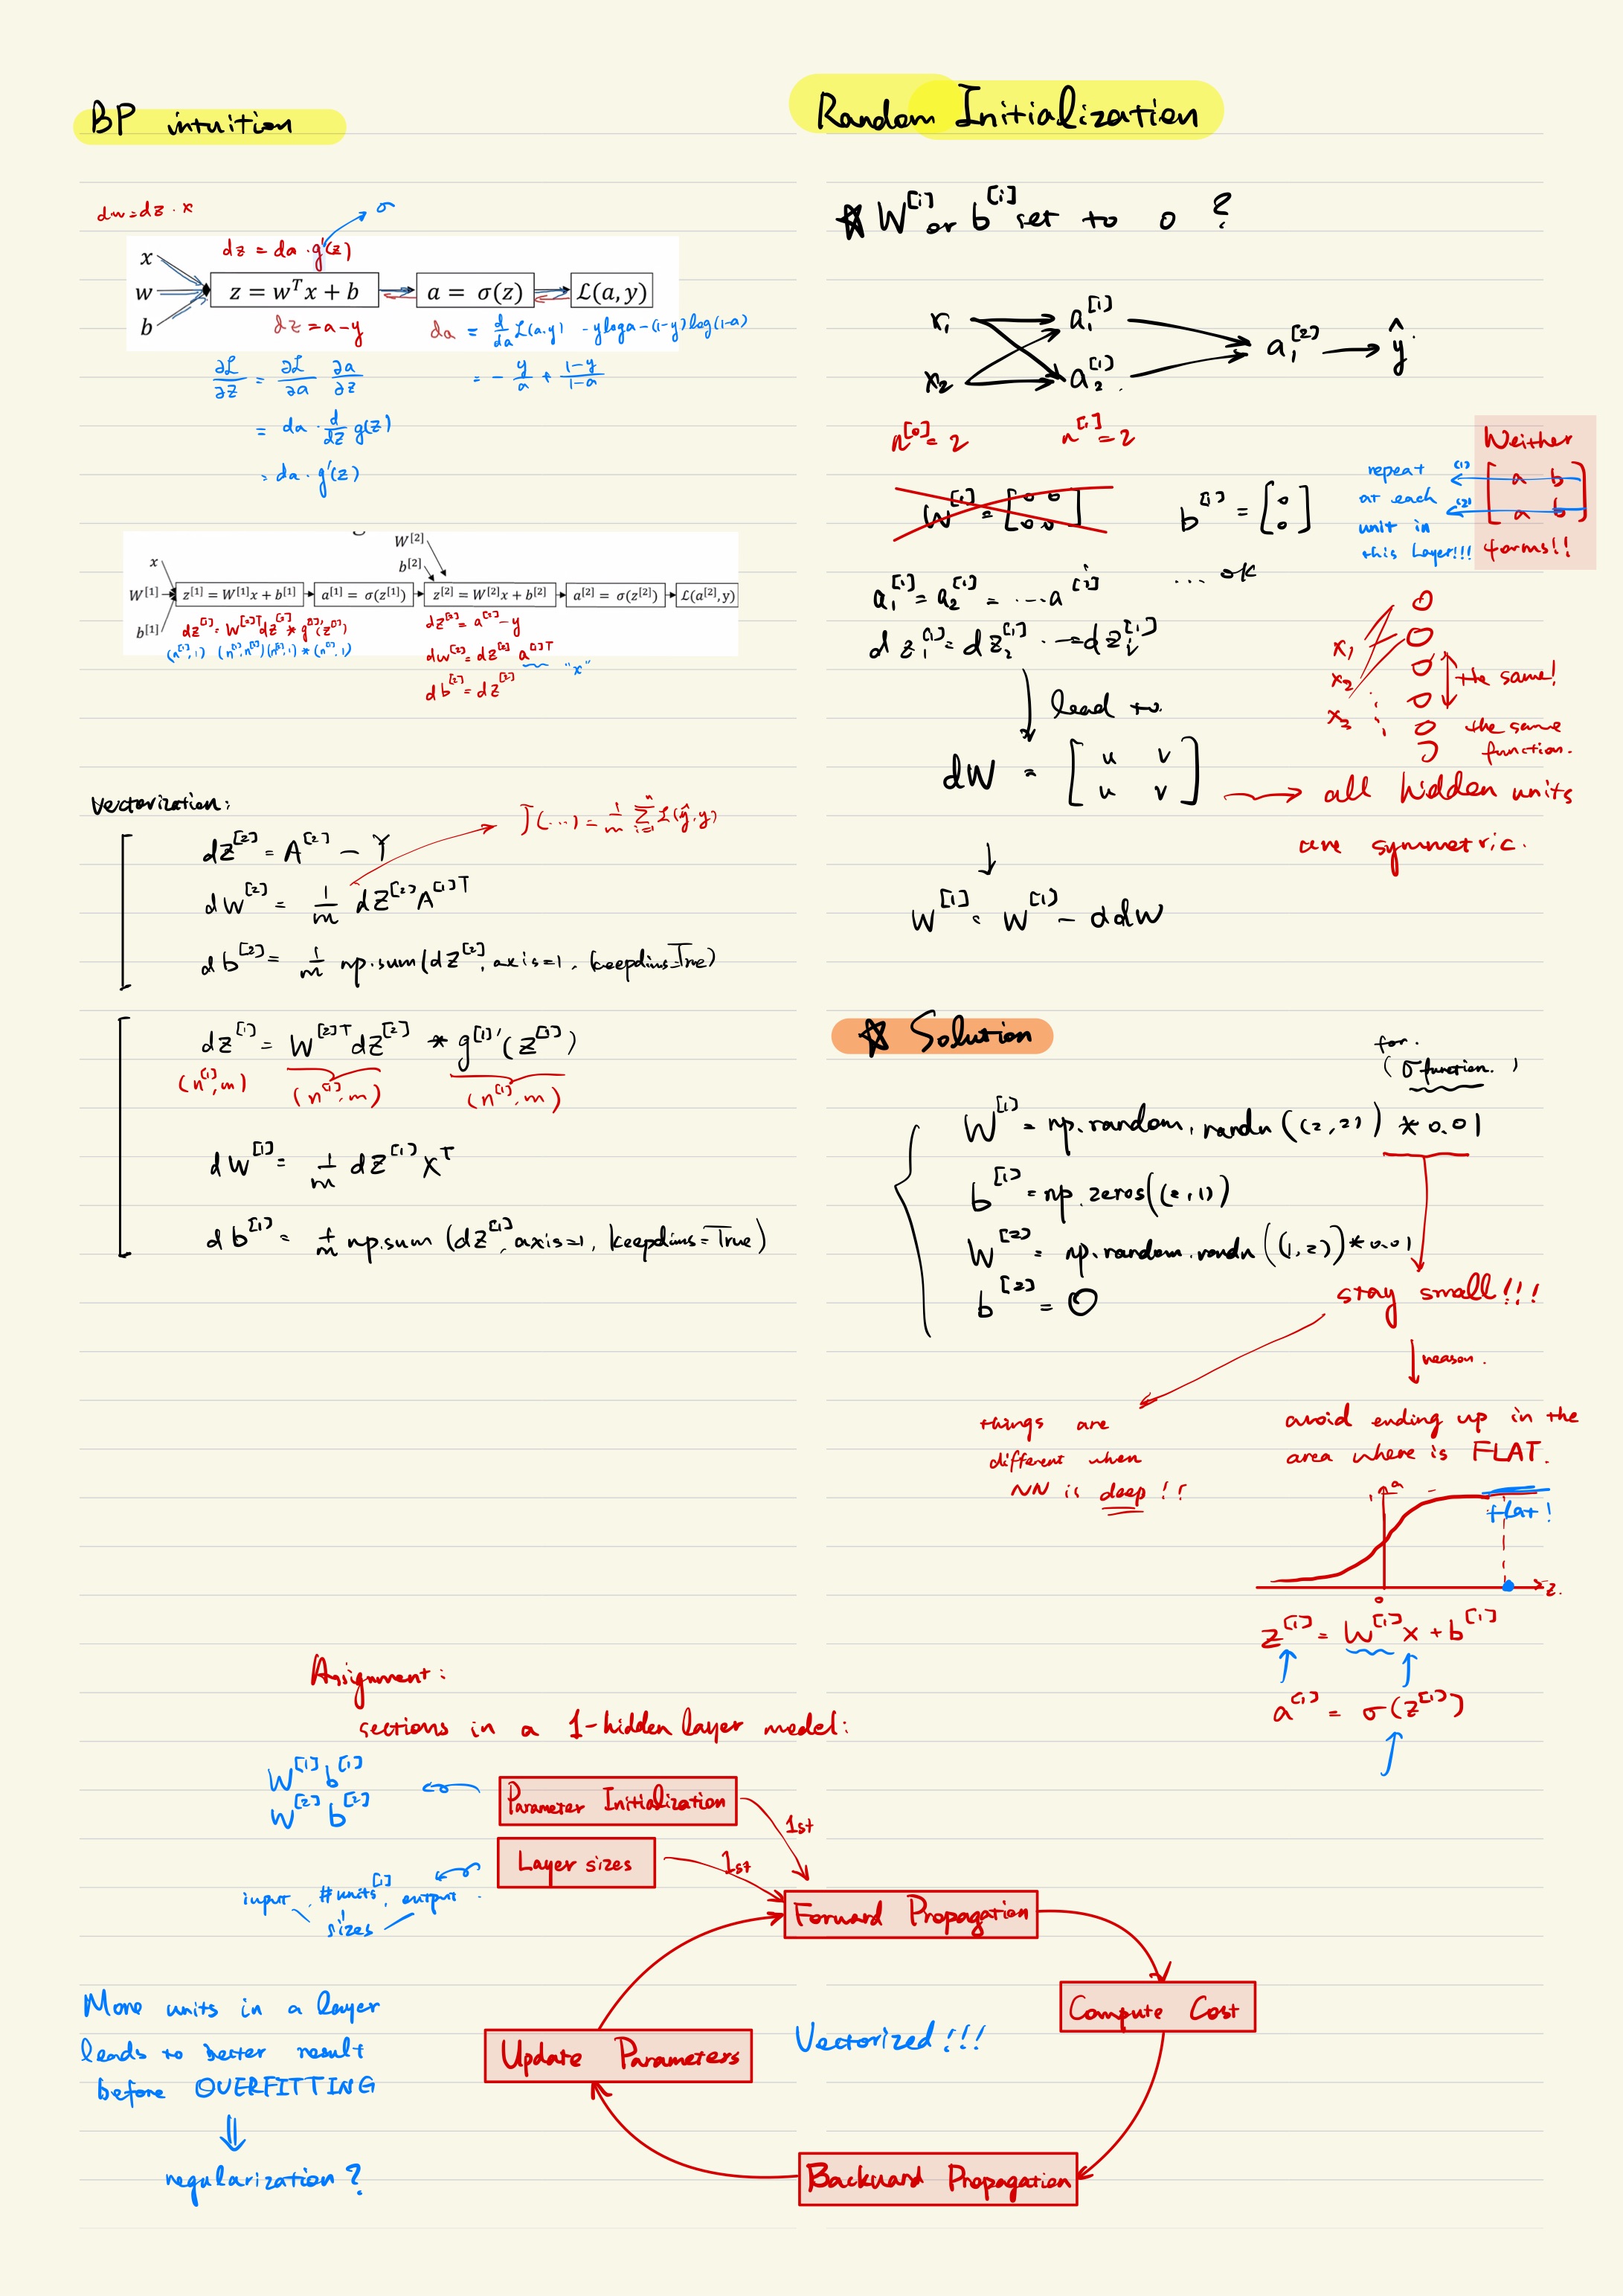 BP intuition
dw = dz · x
σ
dz = da · g'(z)
x
w
b
z = wᵀx + b
a = σ(z)
ℒ(a, y)
dz = a - y
da = d/da ℒ(a,y) - yloga - (1-y)log(1-a)
∂ℒ/∂z = ∂ℒ/∂a ∂a/∂z
= - y/a + 1-y/1-a
= da · d/dz g(z)
= da · g'(z)
W[2]
b[2]
x
W[1]
b[1]
z[1] = W[1]x + b[1]
a[1] = σ(z[1])
z[2] = W[2]x + b[2]
a[2] = σ(z[2])
ℒ(a[2], y)
dz[1] = W[2]T dz[2] * g[1]'(z[1])
(n[1],1) (n[1],n[2]) (n[2],1) * (n[1],1)
dz[2] = a[2] - y
dw[2] = dz[2] a[1]T
"x"
db[2] = dz[2]
Vectorization:
J(...) = 1/m Σ ℒ(ŷ, y)
dz[2] = A[2] - Y
dw[2] = 1/m dZ[2] A[1]T
db[2] = 1/m np.sum(dZ[2], axis=1, keepdims=True)
dz[1] = W[2]T dz[2] * g[1]'(z[1])
(n[1], m) (n[1], m) (n[1], m)
dw[1] = 1/m dZ[1] Xᵀ
db[1] = 1/m np.sum (dZ[1], axis=1, keepdims=True)
Random Initialization
☆ W[i] or b[i] set to 0 ?
x₁
x₂
a₁[1]
a₂[1]
a₁[2]
ŷ
n[0] = 2
n[1] = 2
W[1] = [0 0
0 0]
b[1] = [0
0]
... ok
Neither
[a b
a b]
forms!!
(1)
(2)
repeat
at each
unit in
this Layer!!!
a₁[1] = a₂[1] = ... a[i]
dz₁[1] = dz₂[1] ... = dzᵢ[1]
lead to
x₁
x₂
x₃
the same!
the same
function.
dW = [u v
u v]
all hidden units
are symmetric.
W[1] = W[1] - αdw
☆ Solution
for.
(σ function.)
W[1] = np.random.randn((2,2)) * 0.01
b[1] = np.zeros((2,1))
W[2] = np.random.randn((1,2)) * 0.01
b[2] = 0
stay small!!!
reason.
things are
different when
NN is deep!!
avoid ending up in the
area where is FLAT.
a
1
flat!
0
z
z[1] = W[1]x + b[1]
a[1] = σ(z[1])
Assignment:
sections in a 1-hidden layer model:
W[1] b[1]
W[2] b[2]
Parameter Initialization
1st
Layer sizes
1st
input, #units[1], output.
sizes
Forward Propagation
Compute Cost
Backward Propagation
Update Parameters
Vectorized!!!
More units in a layer
leads to better result
before OVERFITTING
regularization?